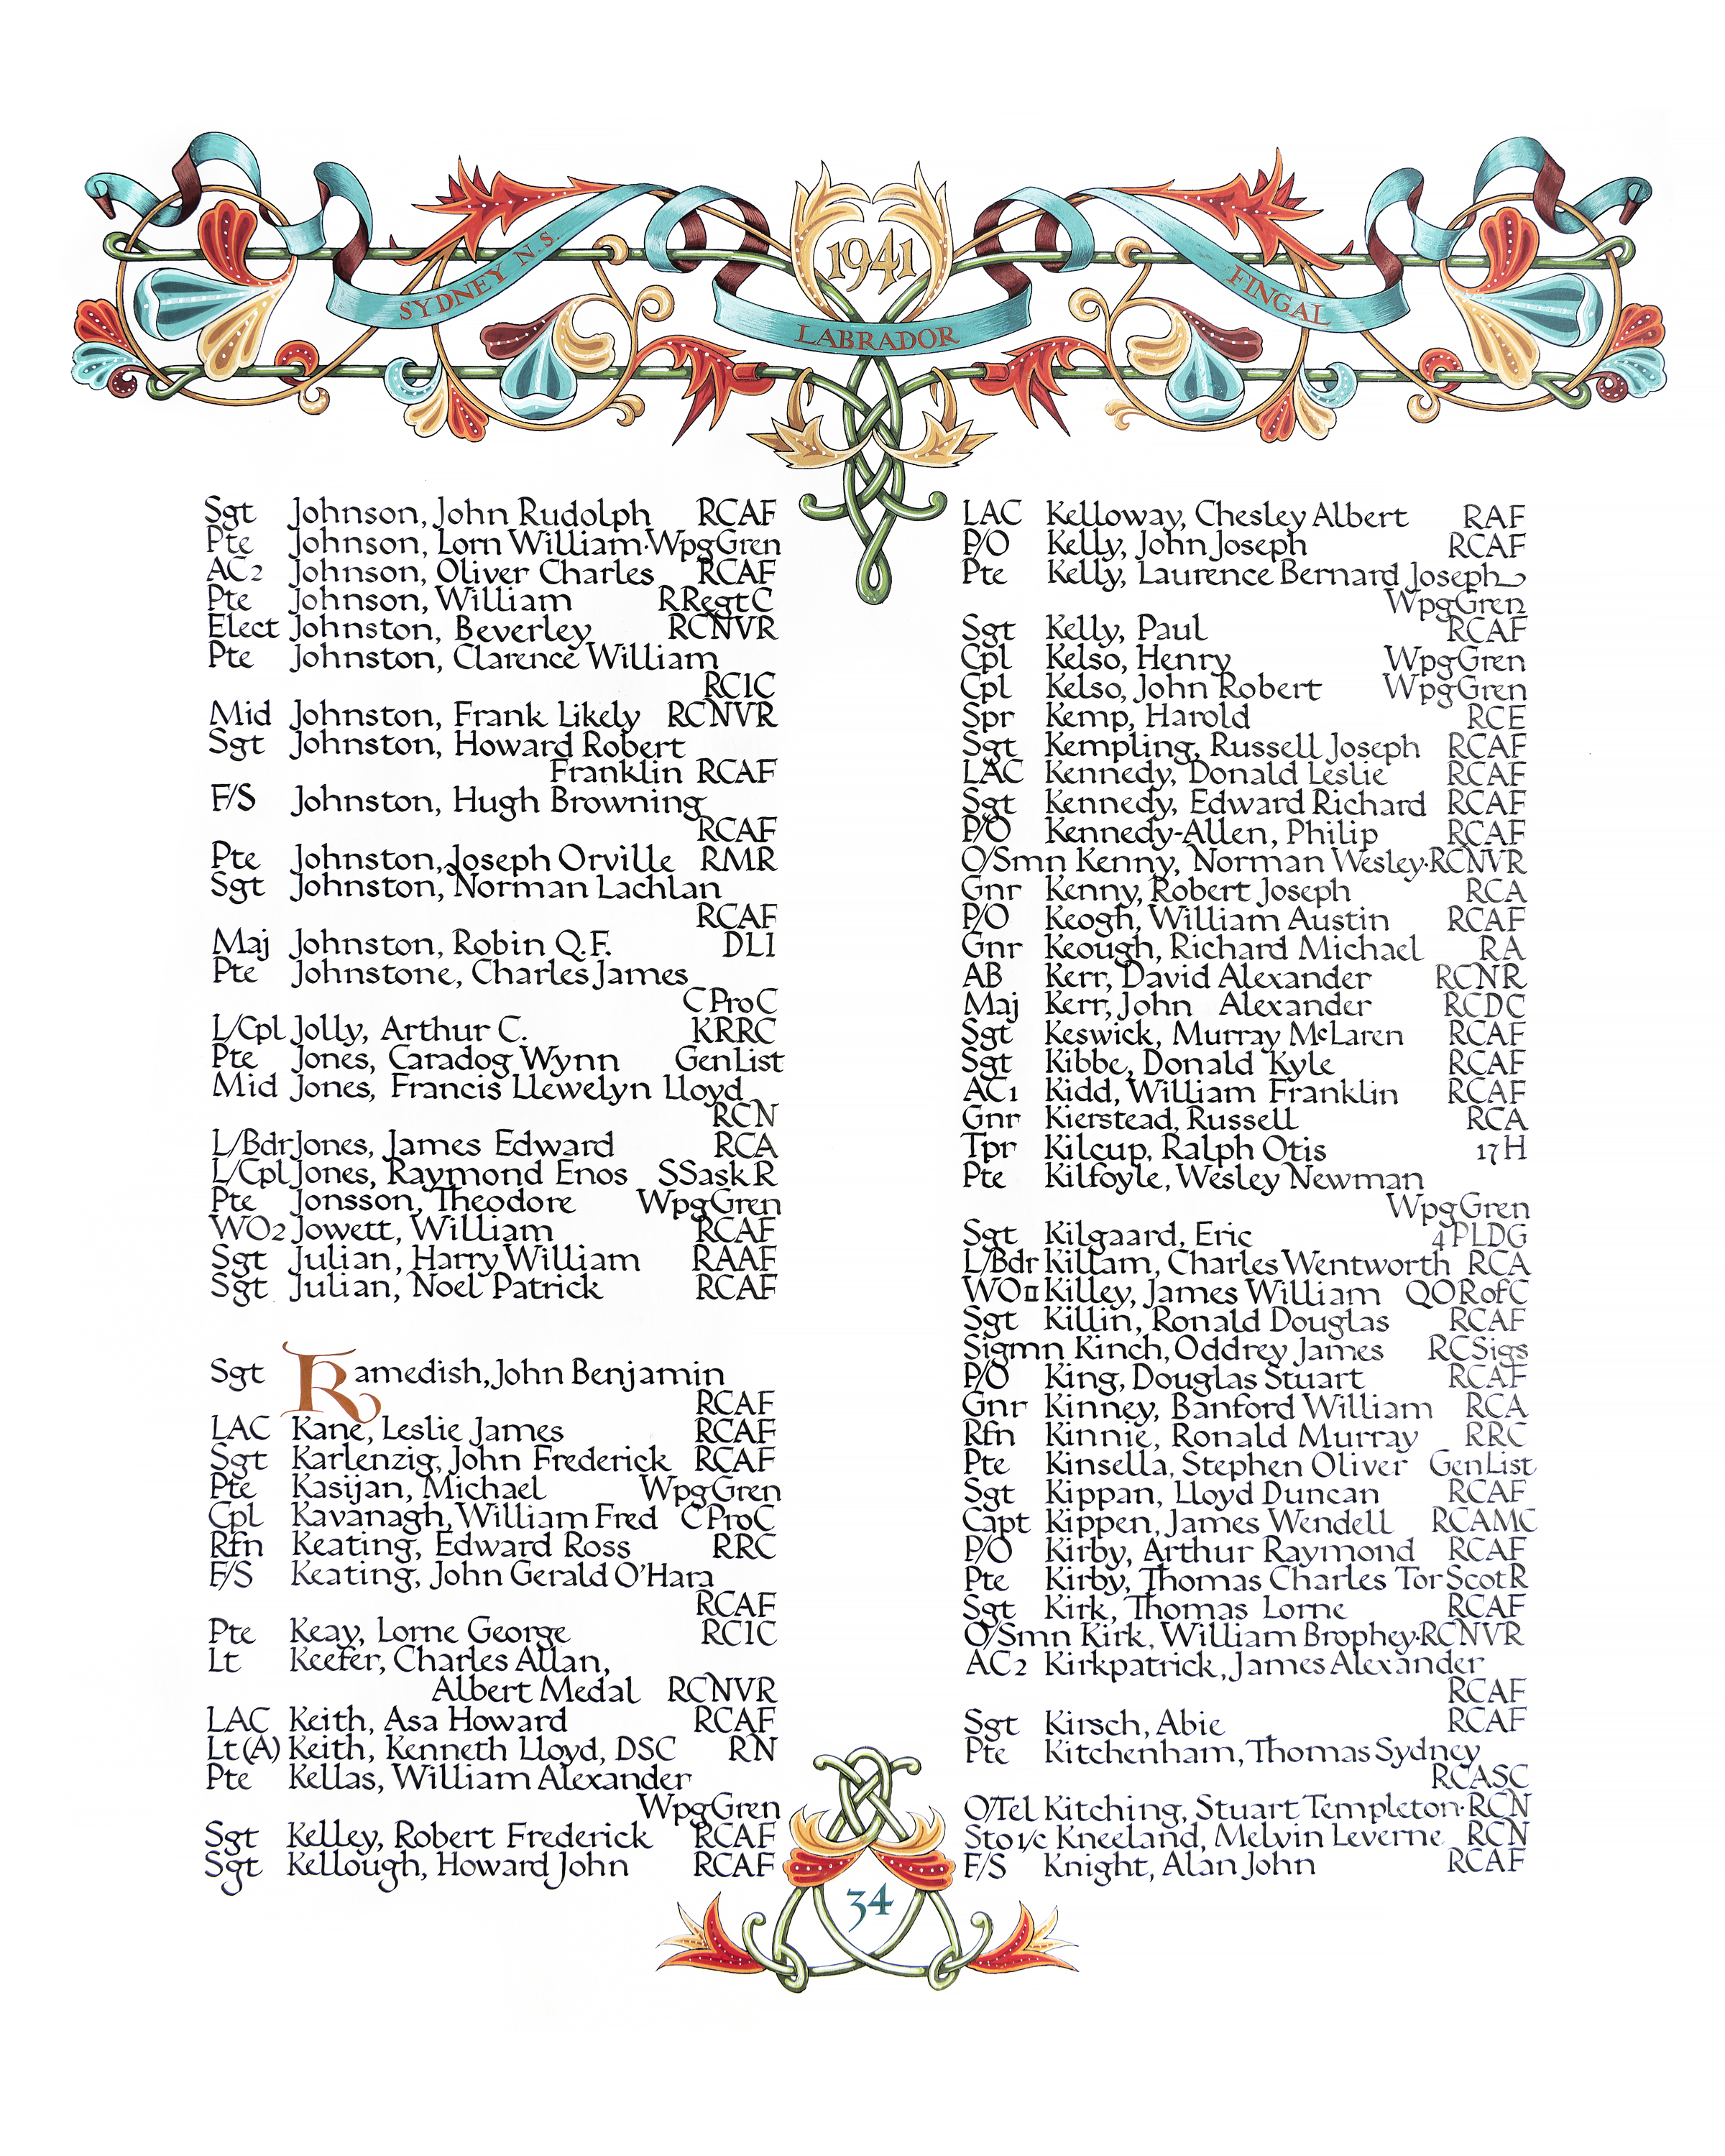 1941
SYDNEY N.S.
LABRADOR
FINGAL
Sgt Johnson, John Rudolph RCAF
Pte Johnson, Lorn William·WpgGren
AC2 Johnson, Oliver Charles RCAF
Pte Johnson, William RRegtC
Elect Johnston, Beverley RCNVR
Pte Johnston, Clarence William
RCIC
Mid Johnston, Frank Likely RCNVR
Sgt Johnston, Howard Robert
Franklin RCAF
F/S Johnston, Hugh Browning
RCAF
Pte Johnston, Joseph Orville RMR
Sgt Johnston, Norman Lachlan
RCAF
Maj Johnston, Robin Q.F. DLI
Pte Johnstone, Charles James
CProC
L/Cpl Jolly, Arthur C. KRRC
Pte Jones, Caradog Wynn GenList
Mid Jones, Francis Llewelyn Lloyd
RCN
L/Bdr Jones, James Edward RCA
L/Cpl Jones, Raymond Enos SSaskR
Pte Jonsson, Theodore WpgGren
WO2 Jowett, William RCAF
Sgt Julian, Harry William RAAF
Sgt Julian, Noel Patrick RCAF
Sgt Kamedish, John Benjamin
RCAF
LAC Kane, Leslie James RCAF
Sgt Karlenzig, John Frederick RCAF
Pte Kasijan, Michael WpgGren
Cpl Kavanagh, William Fred CProC
Rfn Keating, Edward Ross RRC
F/S Keating, John Gerald O'Hara
RCAF
Pte Keay, Lorne George RCIC
Lt Keefer, Charles Allan,
Albert Medal RCNVR
LAC Keith, Asa Howard RCAF
Lt(A) Keith, Kenneth Lloyd, DSC RN
Pte Kellas, William Alexander
WpgGren
Sgt Kelley, Robert Frederick RCAF
Sgt Kellough, Howard John RCAF
LAC Kelloway, Chesley Albert RAF
P/O Kelly, John Joseph RCAF
Pte Kelly, Laurence Bernard Joseph
WpgGren
Sgt Kelly, Paul RCAF
Cpl Kelso, Henry WpgGren
Cpl Kelso, John Robert WpgGren
Spr Kemp, Harold RCE
Sgt Kempling, Russell Joseph RCAF
LAC Kennedy, Donald Leslie RCAF
Sgt Kennedy, Edward Richard RCAF
P/O Kennedy-Allen, Philip RCAF
O/Smn Kenny, Norman Wesley·RCNVR
Gnr Kenny, Robert Joseph RCA
P/O Keogh, William Austin RCAF
Gnr Keough, Richard Michael RA
AB Kerr, David Alexander RCNR
Maj Kerr, John Alexander RCDC
Sgt Keswick, Murray McLaren RCAF
Sgt Kibbe, Donald Kyle RCAF
AC1 Kidd, William Franklin RCAF
Gnr Kierstead, Russell RCA
Tpr Kilcup, Ralph Otis 17H
Pte Kilfoyle, Wesley Newman
WpgGren
Sgt Kilgaard, Eric 4PLDG
L/Bdr Killam, Charles Wentworth RCA
WOII Killey, James William QORofC
Sgt Killin, Ronald Douglas RCAF
Sigmn Kinch, Oddrey James RCSigs
P/O King, Douglas Stuart RCAF
Gnr Kinney, Banford William RCA
Rfn Kinnie, Ronald Murray RRC
Pte Kinsella, Stephen Oliver GenList
Sgt Kippan, Lloyd Duncan RCAF
Capt Kippen, James Wendell RCAMC
P/O Kirby, Arthur Raymond RCAF
Pte Kirby, Thomas Charles TorScotR
Sgt Kirk, Thomas Lorne RCAF
O/Smn Kirk, William Brophey·RCNVR
AC2 Kirkpatrick, James Alexander
RCAF
Sgt Kirsch, Abie RCAF
Pte Kitchenham, Thomas Sydney
RCASC
O/Tel Kitching, Stuart Templeton·RCN
Sto1/c Kneeland, Melvin Leverne RCN
F/S Knight, Alan John RCAF
34